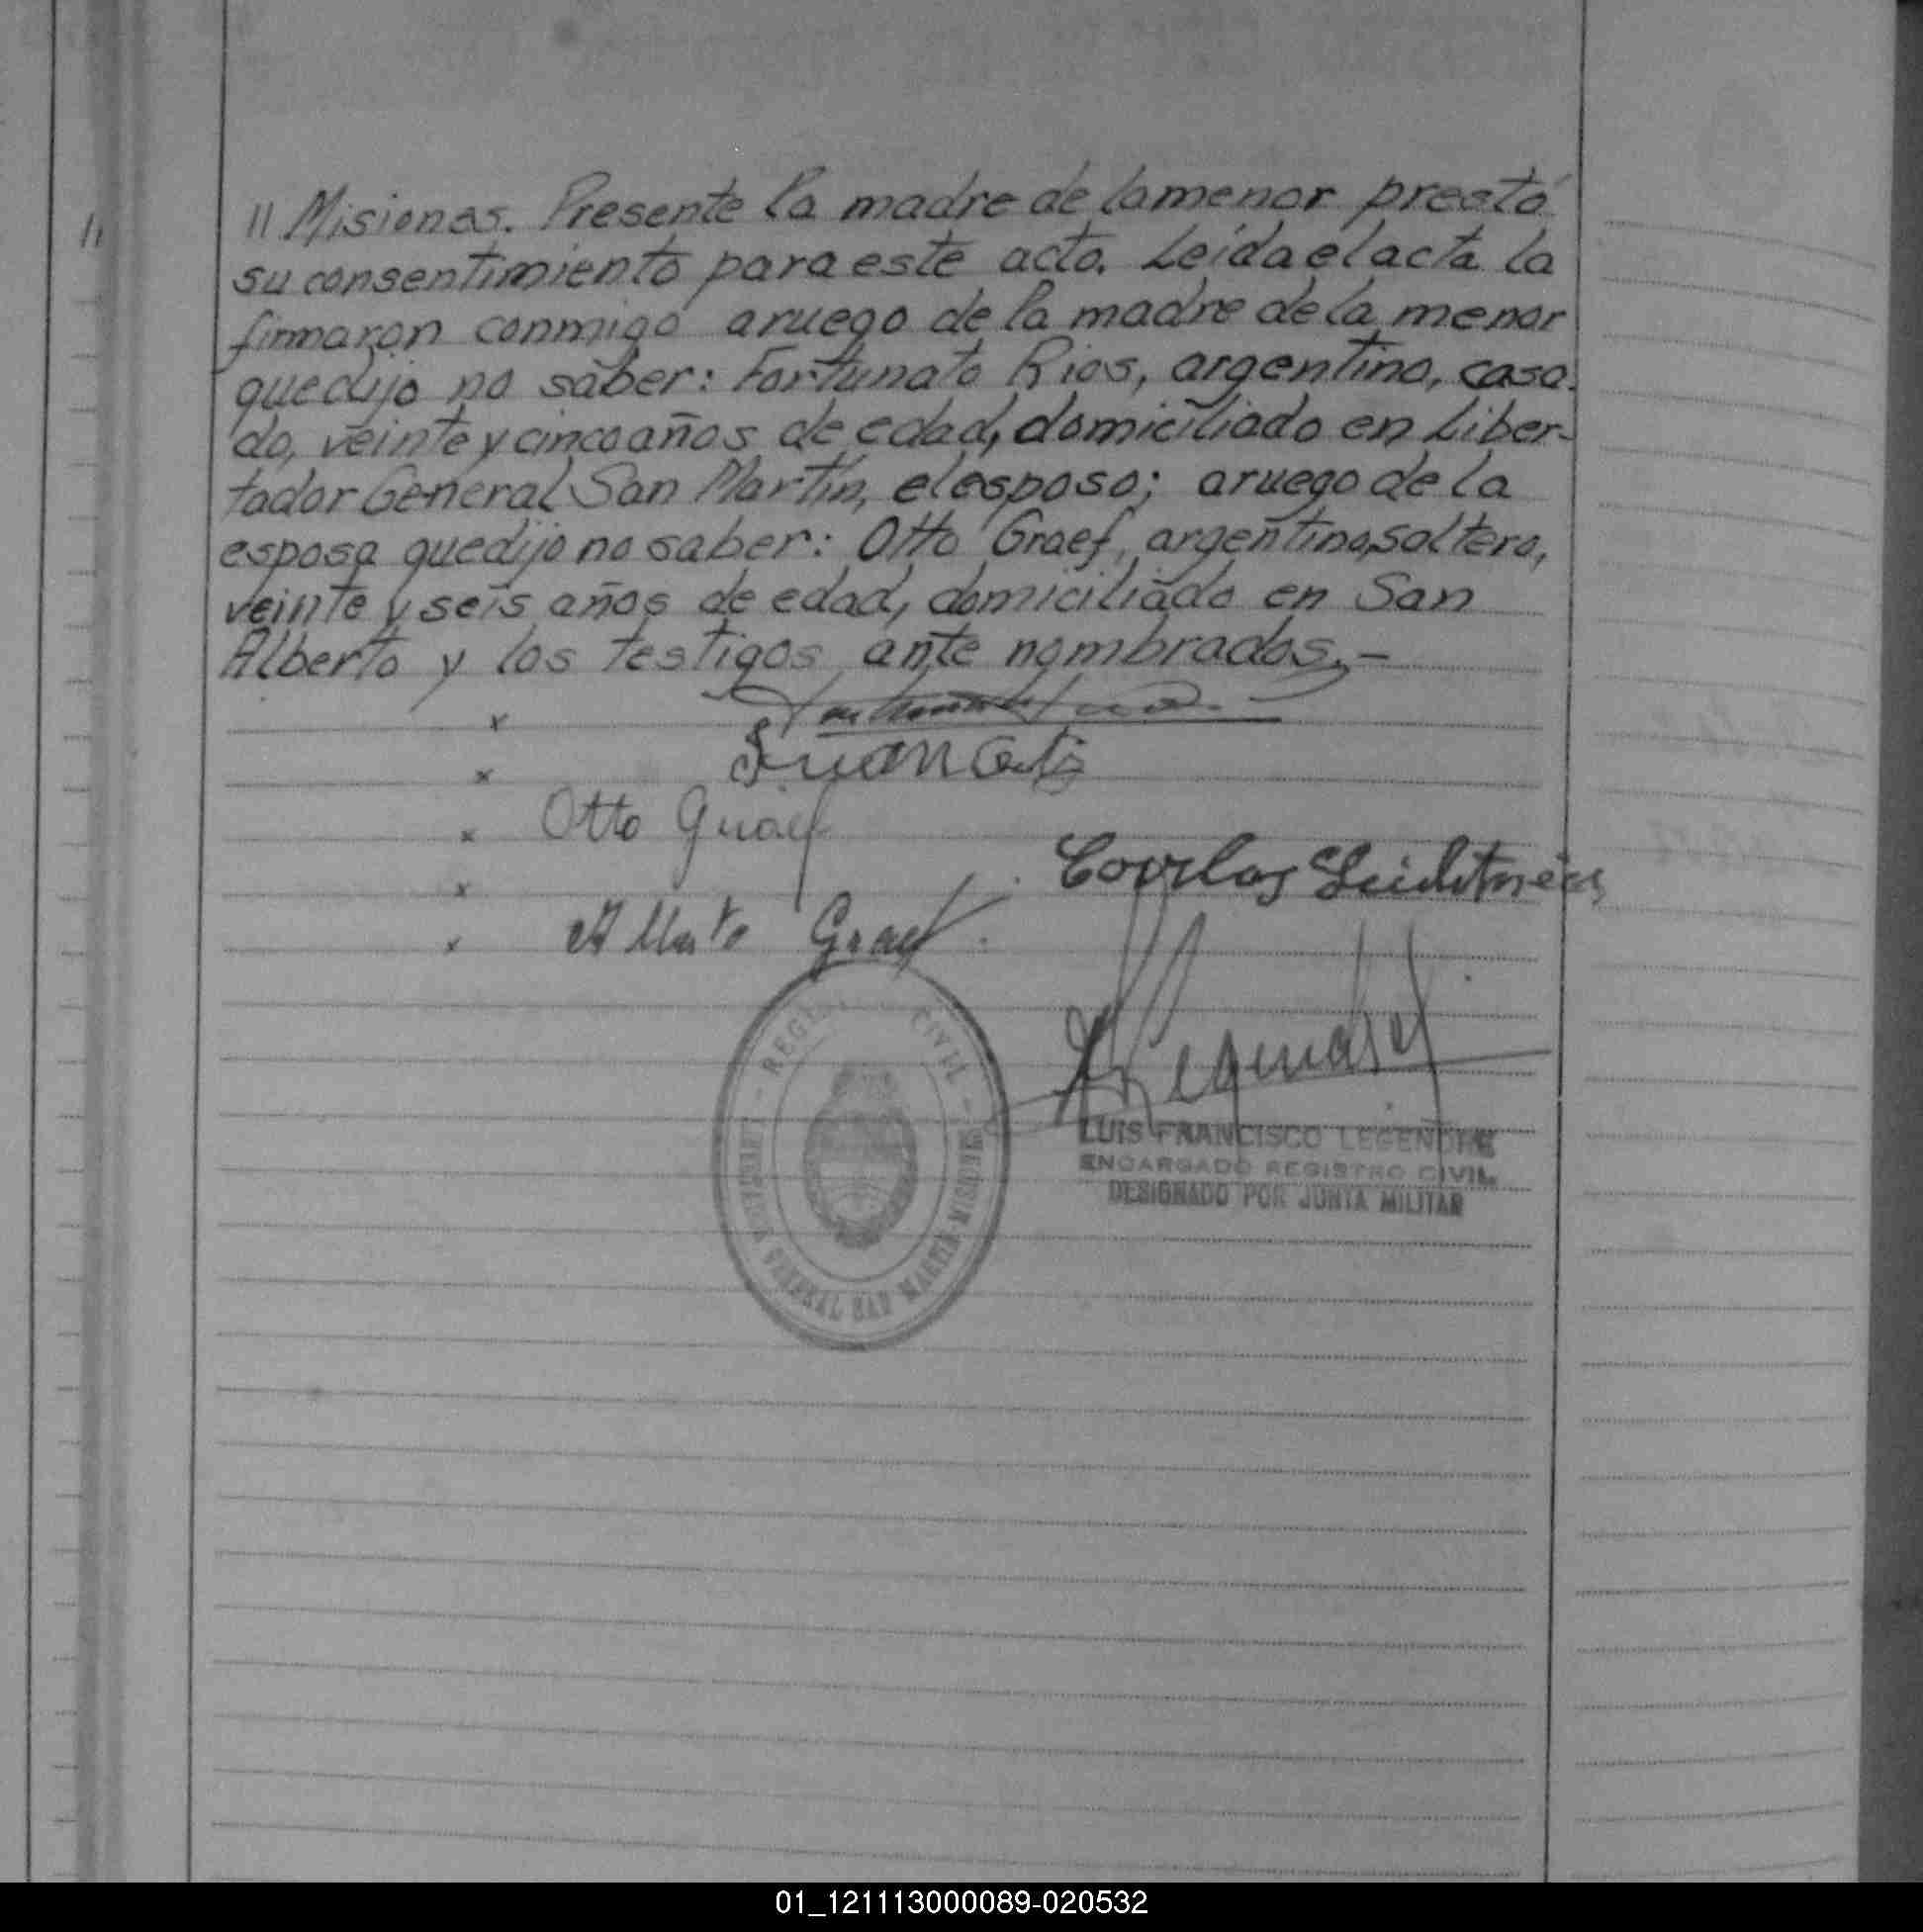 11 Misiones. Presente la madre de la menor prestó
su consentimiento para este acto. Leida el acta la
firmaron conmigo a ruego de la madre de la menor
que dijo no saber: Fortunato Rios, argentino, casa-
do, veinte y cinco años de edad, domiciliado en Liber-
tador General San Martín, el esposo; a ruego de la
esposa que dijo no saber: Otto Graef, argentino, soltero,
veinte y seis años de edad, domiciliado en San
Alberto y los testigos ante nombrados.-
x
x Juan
x Otto Graef
x Carlos
x Alberto Graef
REGI CIVIL - LIBERTADOR GENERAL SAN MARTIN-MISIONES
LUIS FRANCISCO LEGENDRE
ENCARGADO REGISTRO CIVIL
DESIGNADO POR JUNTA MILITAR
01_121113000089-020532